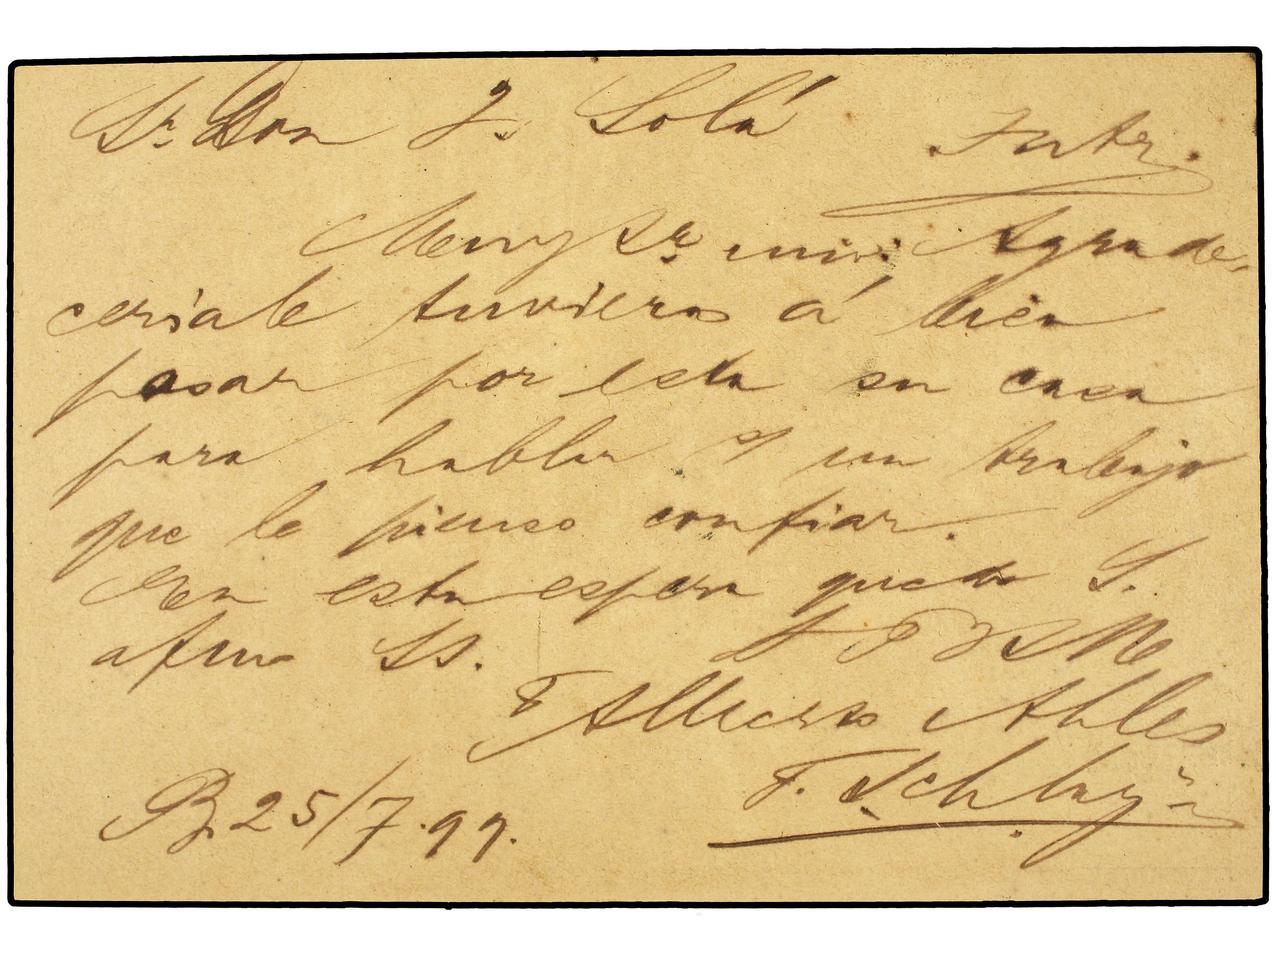 Sr. Don J. Solá
Muy Sr. mio: Agrade-
ceriale tuviera á bien
pasar por esta su casa
para hablar d un trabajo
que le pienso confiar.
En esta espera queda S.
afmo SS.
P. Alberto Ahles
F. Schlay
B. 25/7.99.